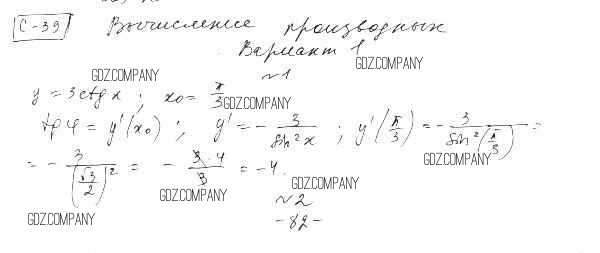 С-39 Вычисление производных
Вариант 1
GDZ.COMPANY
GDZ.COMPANY
№1
y = 3ctg x ; x₀ = π/3
GDZ.COMPANY
tg φ = y'(x₀) ; y' = - 3/sin²x ; y'(π/3) = - 3/sin²(π/3) =
GDZ.COMPANY
= - 3/(√3/2)² = - 3·4/3 = -4.
GDZ.COMPANY
№2
GDZ.COMPANY
-82-
GDZ.COMPANY